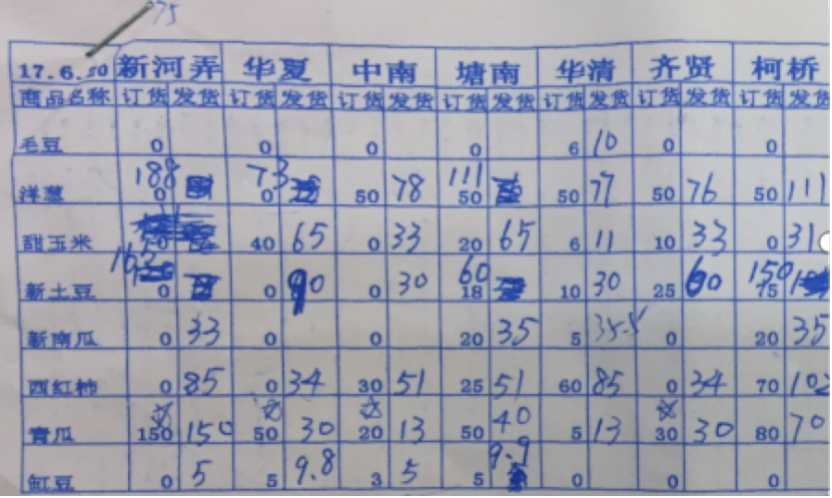 75
17.6. 新河弄 华夏 中南 塘南 华清 齐贤 柯桥
商品名称 订货 发货 订货 发货 订货 发货 订货 发货 订货 发货 订货 发货 订货 发货
毛豆 0 0 0 0 6 10 0 0
洋葱 188 0 73 0 50 78 111 50 50 77 50 76 50 111
甜玉米 40 65 0 33 20 65 6 11 10 33 0 31
新土豆 0 0 90 0 30 60 18 10 30 25 60 150 75
新南瓜 0 33 0 0 20 35 5 35.5 0 20 35
西红柿 0 85 0 34 30 51 25 51 60 85 0 34 70 102
青瓜 150 150 50 30 20 13 50 40 5 13 30 30 80 70
缸豆 0 5 5 9.8 3 5 5 9.9 0 0 0